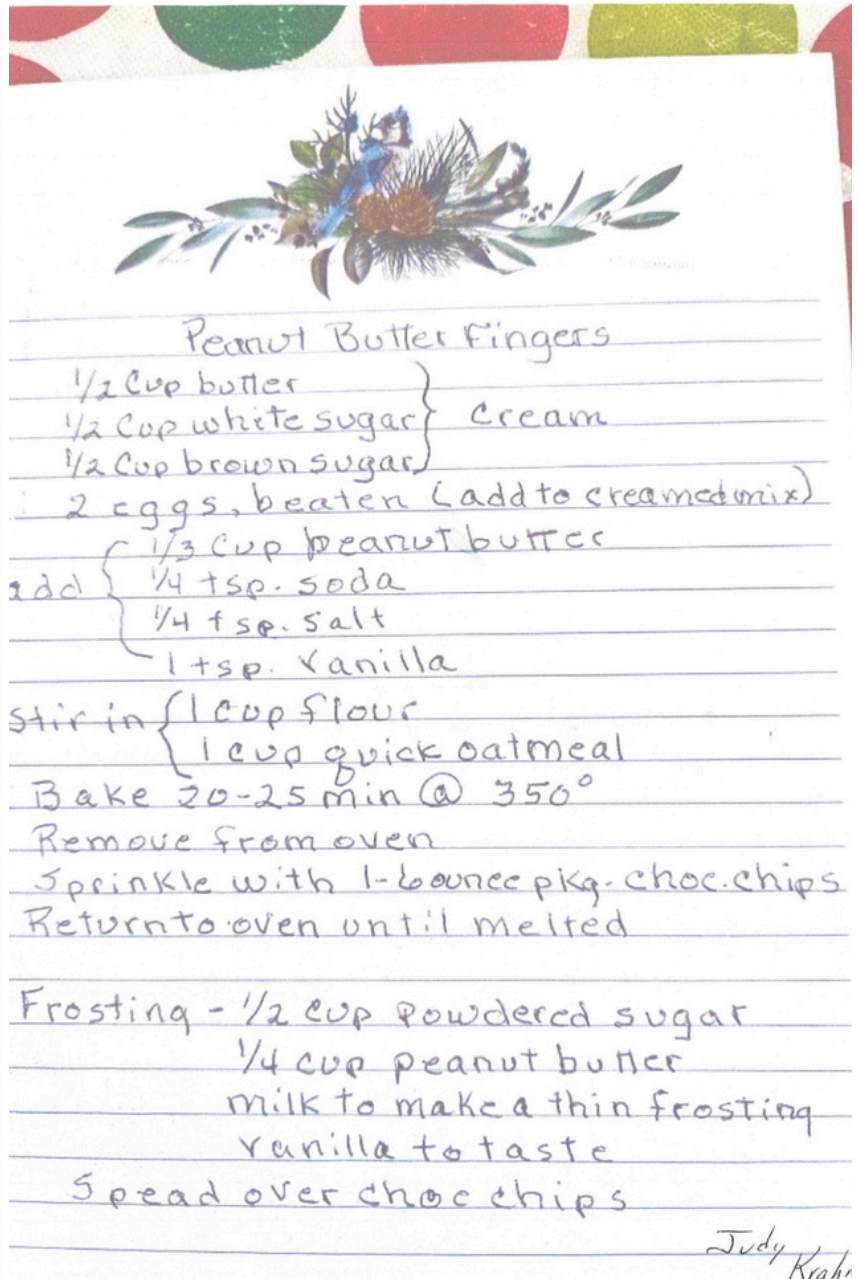 Peanut Butter Fingers
1/2 Cup butter
1/2 Cup white sugar } cream
1/2 Cup brown sugar
2 eggs, beaten (add to creamed mix)
1/3 Cup peanut butter
add { 1/4 tsp. soda
1/4 tsp. salt
1 tsp. vanilla
Stir in { 1 cup flour
1 cup quick oatmeal
Bake 20-25 min @ 350°
Remove from oven
Sprinkle with 1-6 ounce pkg. choc. chips
Return to oven until melted
Frosting - 1/2 cup powdered sugar
1/4 cup peanut butter
milk to make a thin frosting
vanilla to taste
Spead over choc chips
Judy Krahn